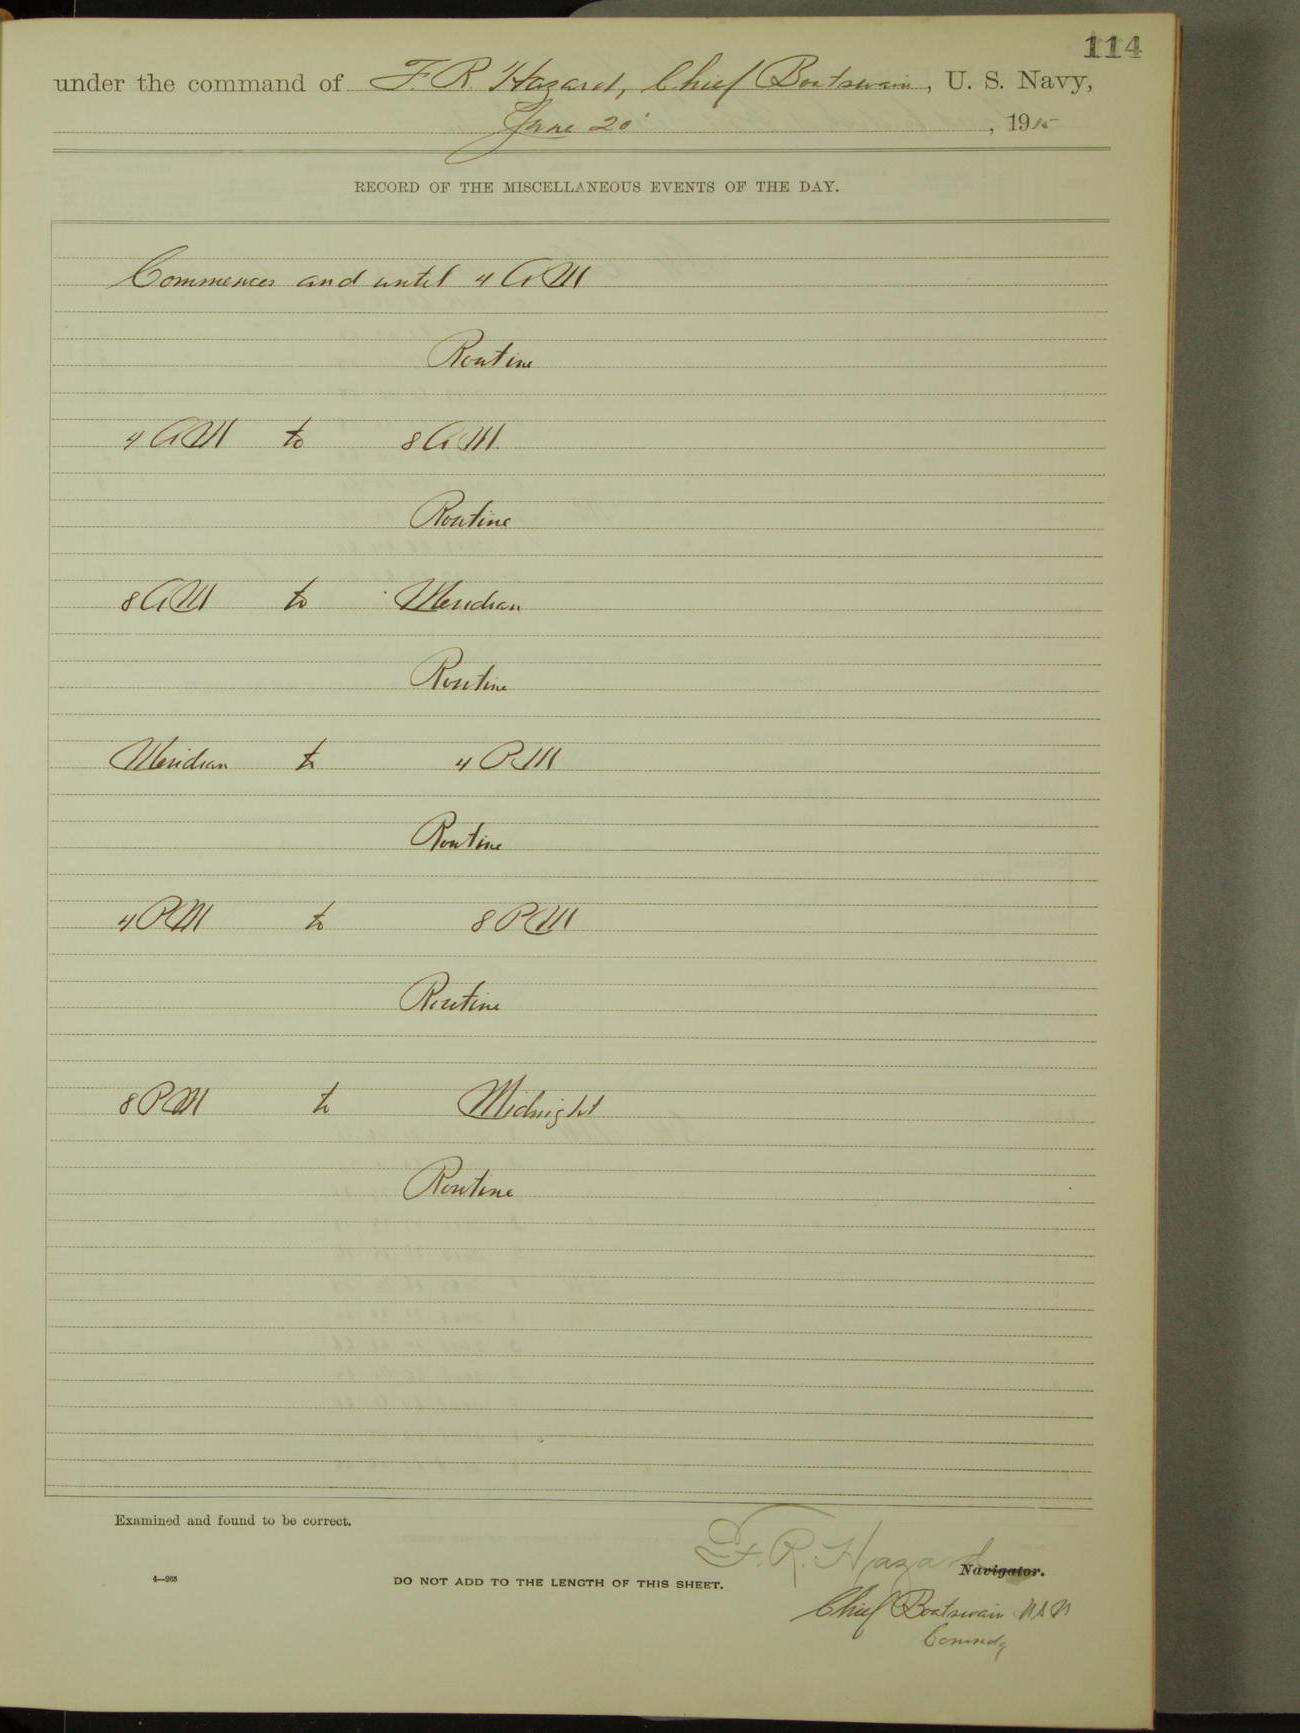 114
under the command of F. R. Hazard, Chief Boatswain, U. S. Navy,
June 20, 1915
RECORD OF THE MISCELLANEOUS EVENTS OF THE DAY.
Commences and until 4 AM
Routine
4 AM to 8 AM.
Routine
8 AM to Meridian
Routine
Meridian to 4 PM
Routine
4 PM to 8 PM
Routine
8 PM to Midnight
Routine
Examined and found to be correct.
F. R. Hazard
Navigator.
4—265
DO NOT ADD TO THE LENGTH OF THIS SHEET.
Chief Boatswain U S N
Commdg